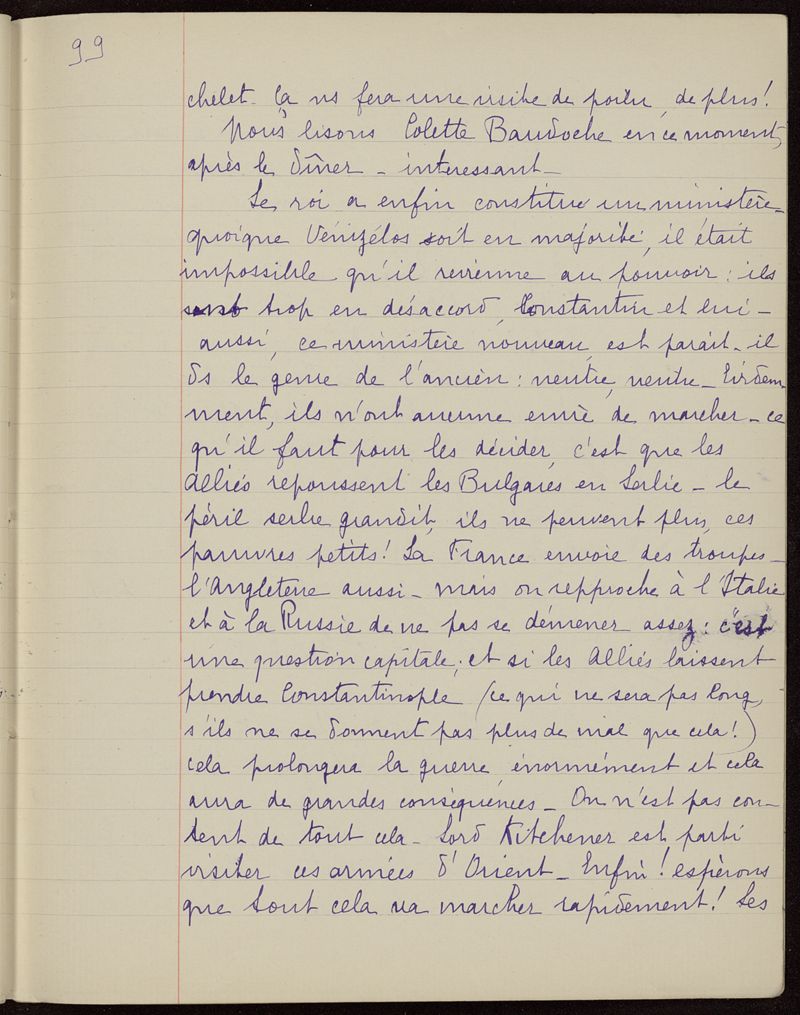 99
chelet - Ça ns fera une visite de poilu, de plus!
Nous lisons Colette Baudoche en ce moment,
après le dîner - interessant -
Le roi a enfin constitué un ministère -
quoique Vénizélos soit en majorité, il était
impossible qu'il revienne au pouvoir : ils
sont trop en désaccord, Constantin et lui -
aussi, ce ministère nouveau, est parait-il
ds le genre de l'ancien : neutre, neutre - Evidem-
ment, ils n'ont aucune envie de marcher - ce
qu'il faut pour les décider, c'est que les
Alliés repoussent les Bulgares en Serbie - le
péril serbe grandit, ils ne peuvent plus, ces
pauvres petits! La France envoie des troupes -
l'Angleterre aussi - mais on reproche à l'Italie
et à la Russie de ne pas se démener assez : c'est
une question capitale; et si les Alliés laissent
prendre Constantinople (ce qui ne sera pas long,
s'ils ne se donnent pas plus de mal que cela!)
cela prolongera la guerre énormément et cela
aura de grandes conséquences - On n'est pas con-
tent de tout cela - Lord Kitchener est parti
visiter ces armées d'Orient - Enfin! espérons
que tout cela va marcher rapidement! Les